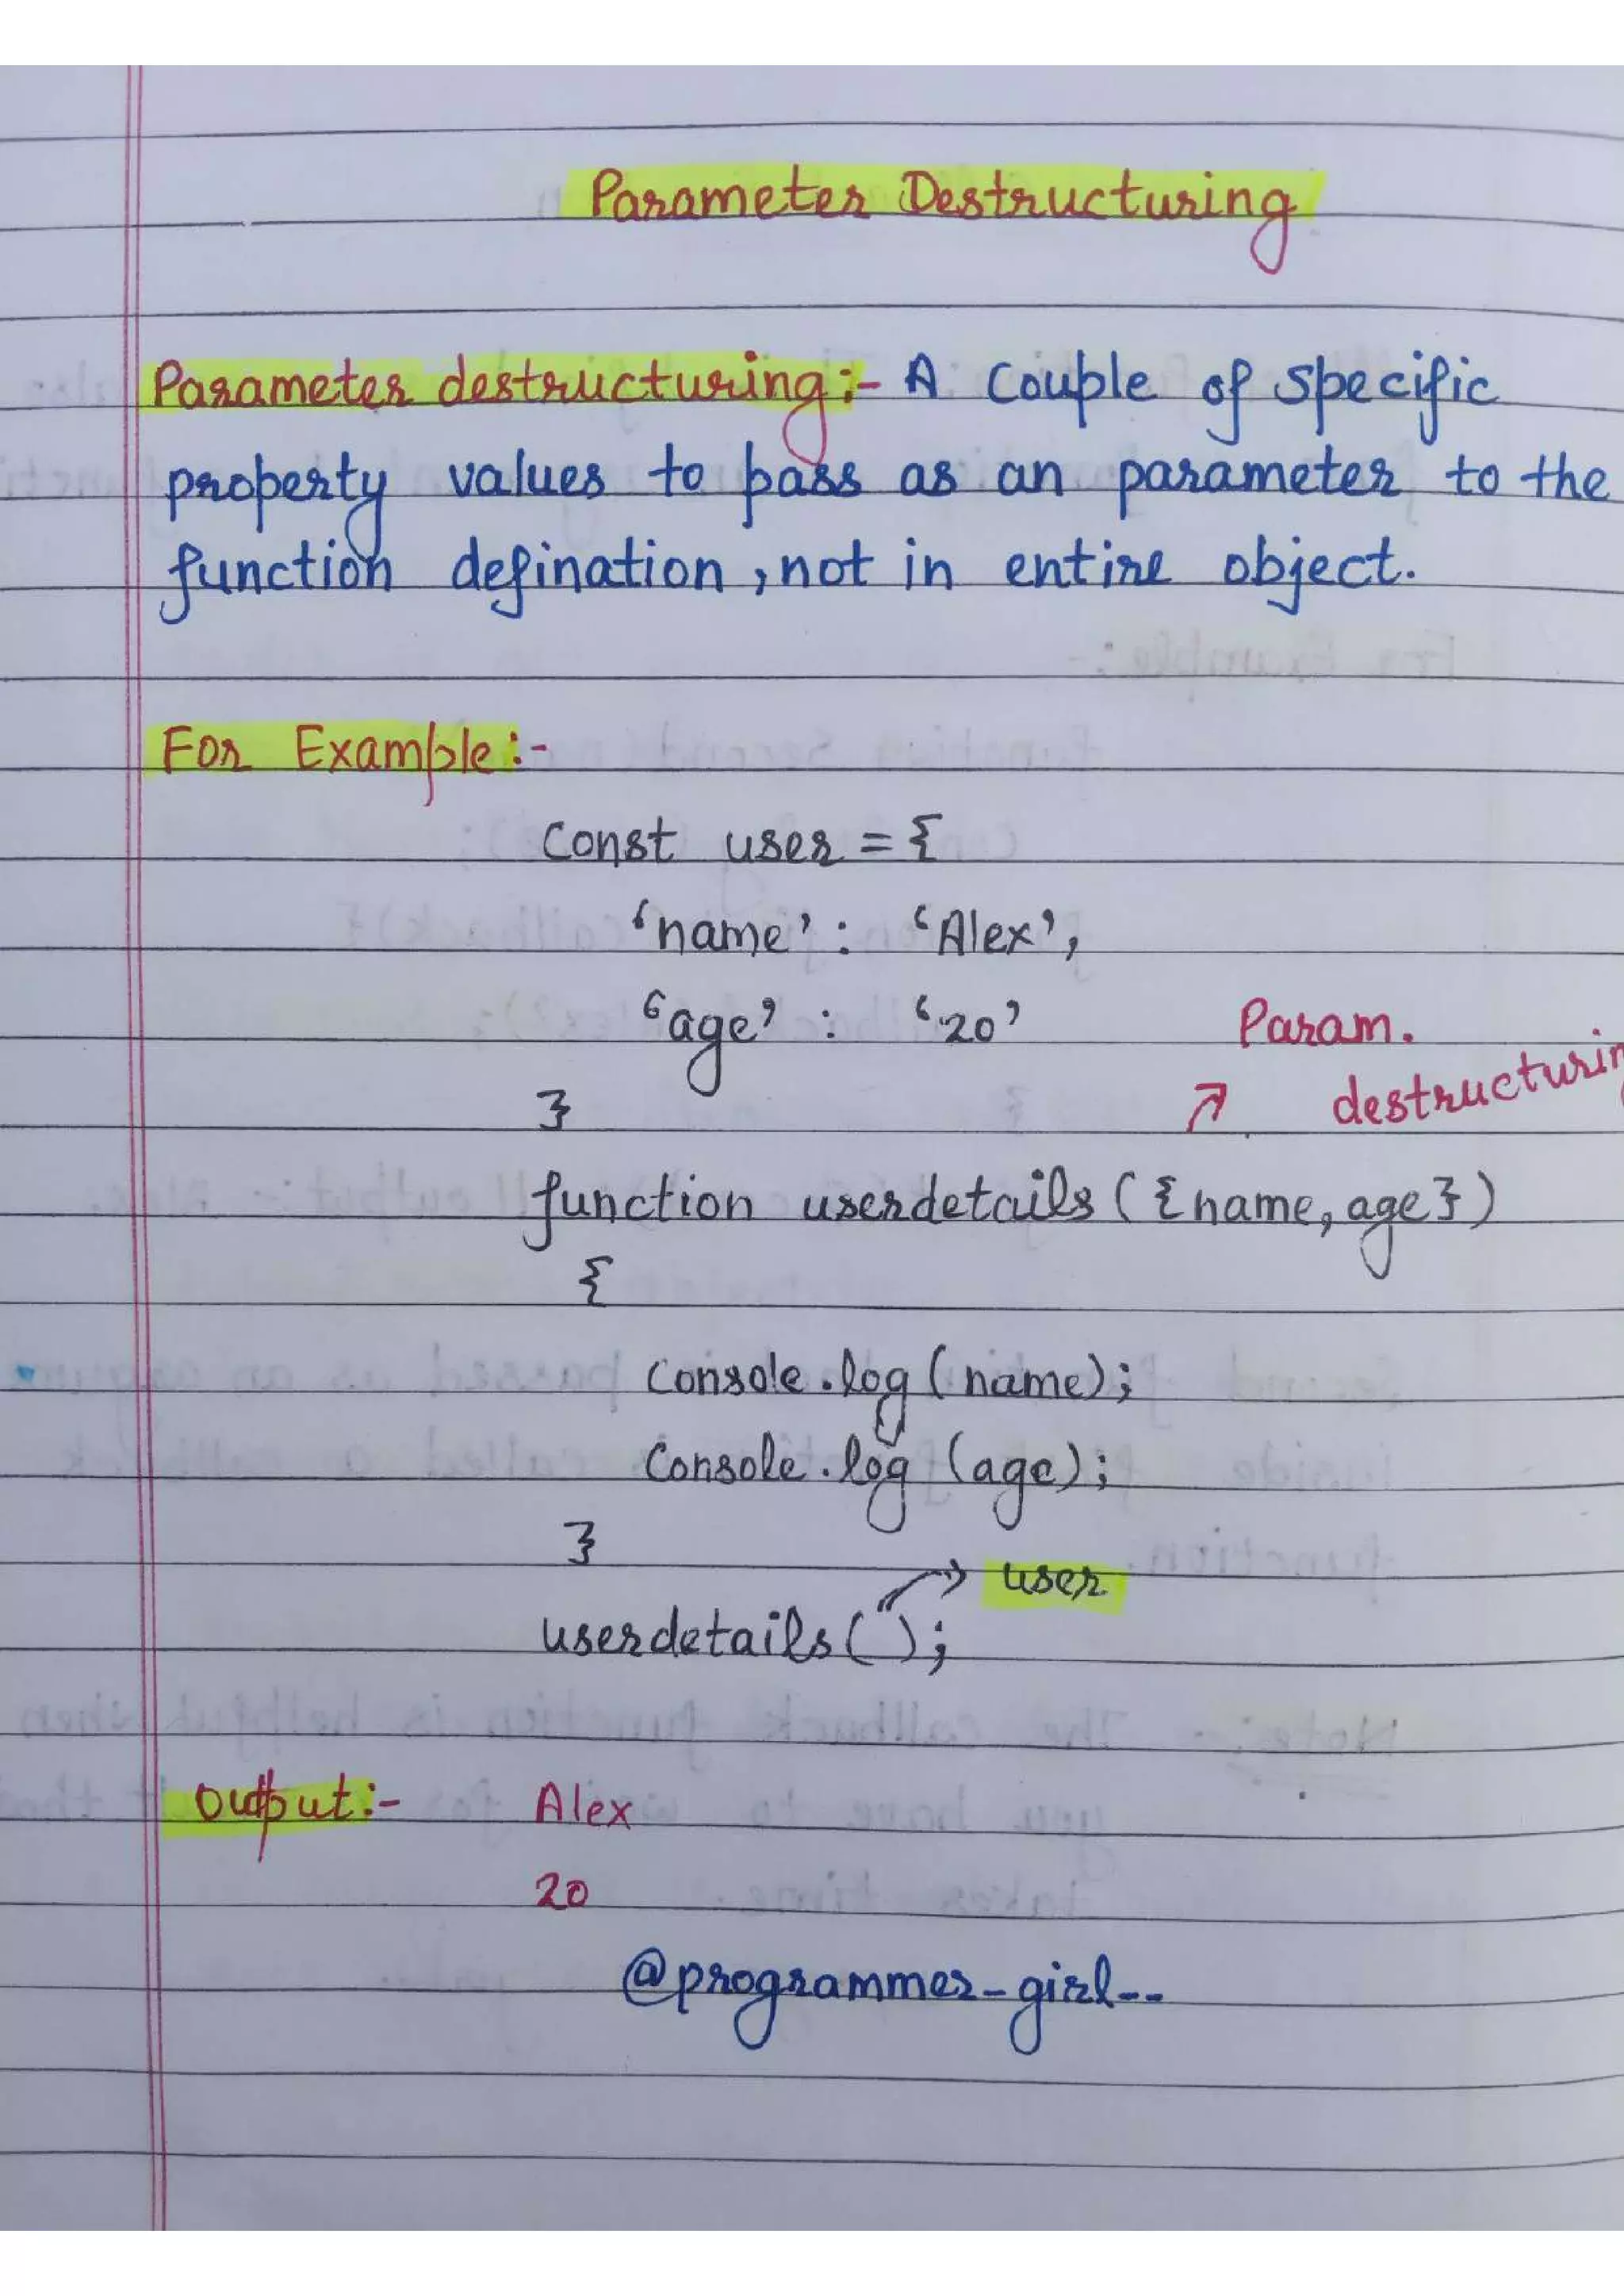 Parameter Destructuring
Parameter destructuring:- A Couple of specific
property values to pass as an parameter to the
function defination, not in entire object.
For Example:-
Const user = {
'name' : 'Alex',
'age' : '20'
Param.
}
destructuring
function userdetails ({name, age})
{
Console.log (name);
Console.log (age);
}
user
userdetails( );
Output:- Alex
20
@programmer_girl--